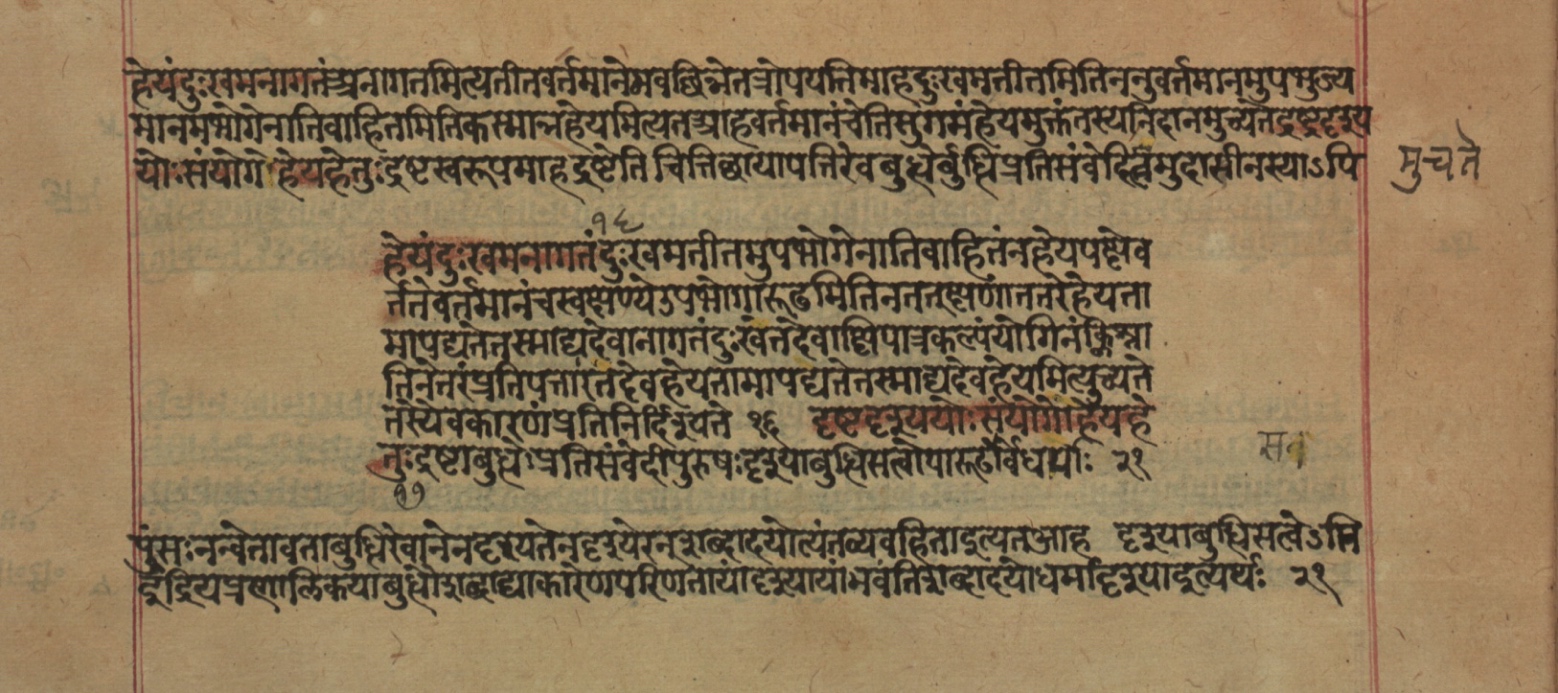 हेयंदुःखमनागतंअनागतमित्यतीतवर्तमानेमवछिन्नेतत्रोपपत्तिमाहदुःखमतीतमितिननुवर्तमानमुपभुज्य
मानमंभोगेनातिवाहितमितिकस्मान्नहेयमित्यतआहवर्तमानंचेतिसुगमंहेयमुक्तंतस्यनिदानमुच्यतेद्रष्टृदृश्य
योःसंयोगोहेयहेतुःद्रष्टृस्वरूपमाहद्रष्टेतिचितिछायापत्तिरेवबुद्धेर्बुद्धिप्रतिसंवेदित्वमुदासीनस्याऽपि
मुच्यते
१६
हेयंदुःखमनागतंदुःखमतीतमुपभोगेनातिवाहितंनहेयपक्षेव
र्ततेवर्तमानंचस्वक्षणेऽपभोगारूढमितिनतत्क्षणांततरेहेयता
मापद्यतेतस्माद्यदेवानागतंदुःखंतदेवाक्षिपात्रकल्पंयोगिनंक्लिश्ना
तिनेतरंप्रतिपत्तारंतदेवहेयतामापद्यतेतस्माद्यदेवहेयमित्युच्यते
तस्यैवकारणंप्रतिनिर्दिश्यते १६ दृष्टदृश्ययोःसंयोगोहेयहे
तुःद्रष्टाबुद्धेःप्रतिसंवेदीपुरुषःदृश्याबुद्धिसत्वोपारूढाःर्विधर्माः २१
१७
पुंसःनन्वेतावताबुद्धिरेवानेनदृश्येतेनदृश्येरन्शब्दादयोत्यंतव्यवहिताइत्यतआह दृश्याबुद्धिसत्वेऽति
इंद्रियप्रणालिकयाबुद्धौशब्दाद्याकारेणपरिणतायांदृश्यायांभवंतिशब्दादयोधर्मादृश्याइत्यर्थः २१